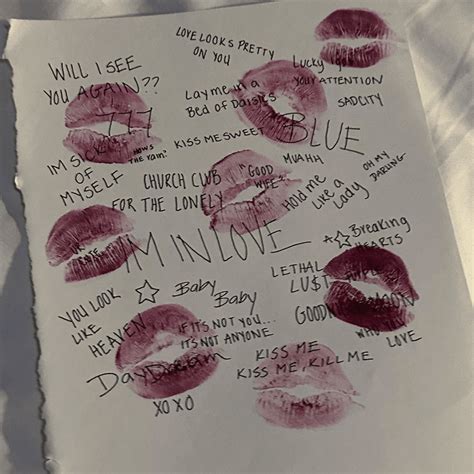 LOVE LOOKS PRETTY
ON YOU
WILL I SEE
YOU AGAIN??
Lucky
YOUR ATTENTION
Lay me in a
Bed of Daisies
SADCITY
777
BLUE
KISS ME SWEET
MUAHH
HOW'S
THE RAIN?
IM SICK
OF
MYSELF
OH MY
DARLING
CHURCH CLUB
FOR THE LONELY
"GOOD
WIFE"
Hold me
Like a
Lady
IM IN LOVE
A ☆ Breaking
HEARTS
LETHAL
LU$T
YOU LOOK
LIKE
HEAVEN
☆ Baby
Baby
GOOD
MOON
IF IT'S NOT YOU...
ITS NOT ANYONE
WHO
LOVE
DayDream
KISS ME
KISS ME, KILL ME
XOXO